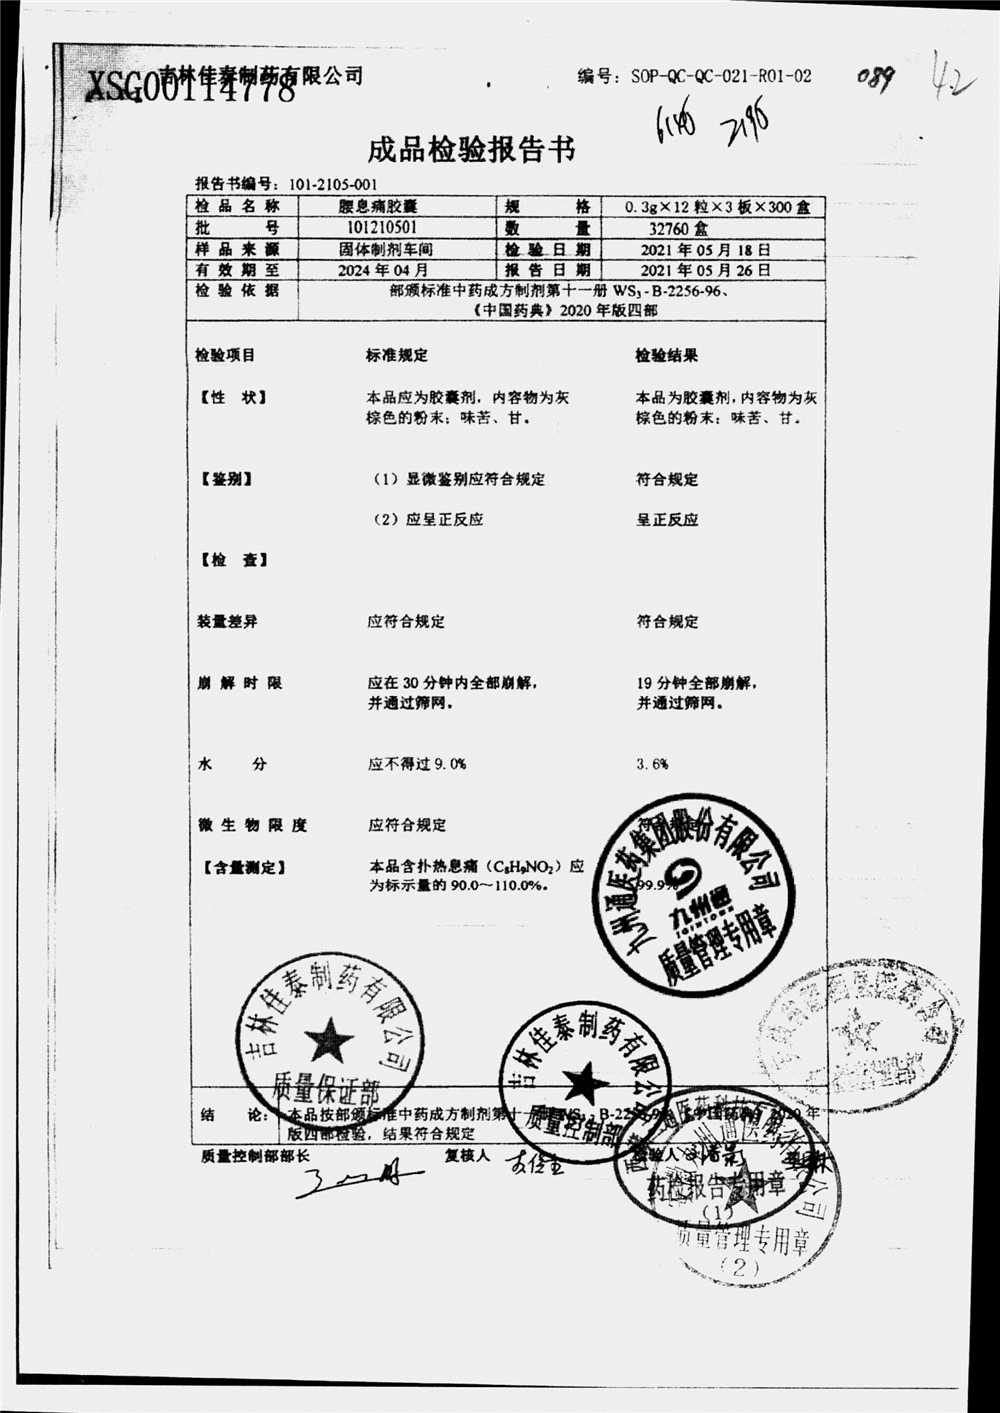 吉林佳泰制药有限公司
XSG00114778
编号：SOP-QC-QC-021-R01-02
089
42
成品检验报告书
报告书编号：101-2105-001
检品名称 腰息痛胶囊 规格 0.3g×12粒×3板×300盒
批号 101210501 数量 32760盒
样品来源 固体制剂车间 检验日期 2021年05月18日
有效期至 2024年04月 报告日期 2021年05月26日
检验依据 部颁标准中药成方制剂第十一册 WS₃-B-2256-96、
《中国药典》2020年版四部
检验项目 标准规定 检验结果
【性 状】 本品应为胶囊剂，内容物为灰 本品为胶囊剂，内容物为灰
棕色的粉末；味苦、甘。 棕色的粉末；味苦、甘。
【鉴别】 （1）显微鉴别应符合规定 符合规定
（2）应呈正反应 呈正反应
【检 查】
装量差异 应符合规定 符合规定
崩解时限 应在30分钟内全部崩解， 19分钟全部崩解，
并通过筛网。 并通过筛网。
水分 应不得过9.0% 3.6%
微生物限度 应符合规定
【含量测定】 本品含扑热息痛（C₈H₉NO₂）应
为标示量的90.0～110.0%。 99.9%
九州通医药集团股份有限公司
九州通
JOINTOWN
质量管理专用章
吉林佳泰制药有限公司
质量保证部
吉林佳泰制药有限公司
质量控制部
结 论： 本品按部颁标准中药成方制剂第十一册 WS₃-B-2256-96、《中国药典》2020年
版四部检验，结果符合规定
质量控制部部长 复核人 检验人
药检报告专用章
（1）
质量管理专用章
（2）